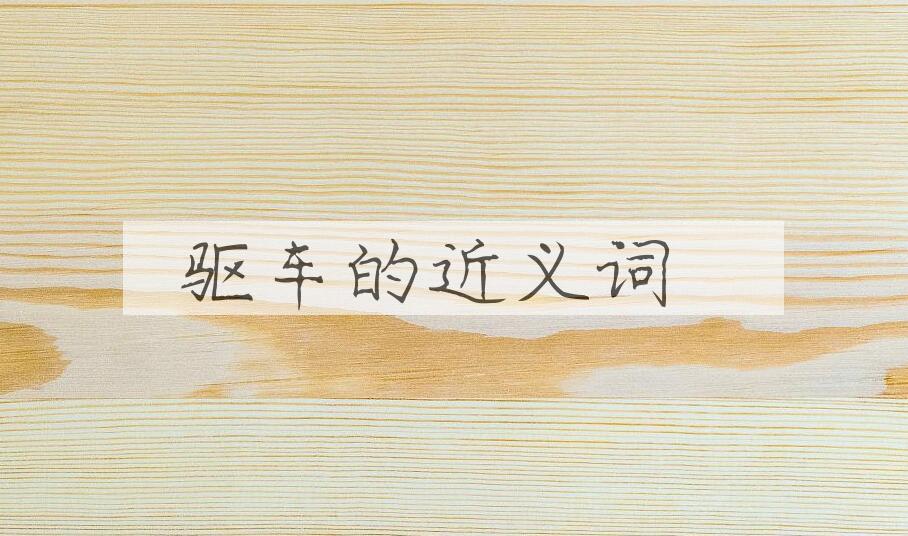 驱车的近义词